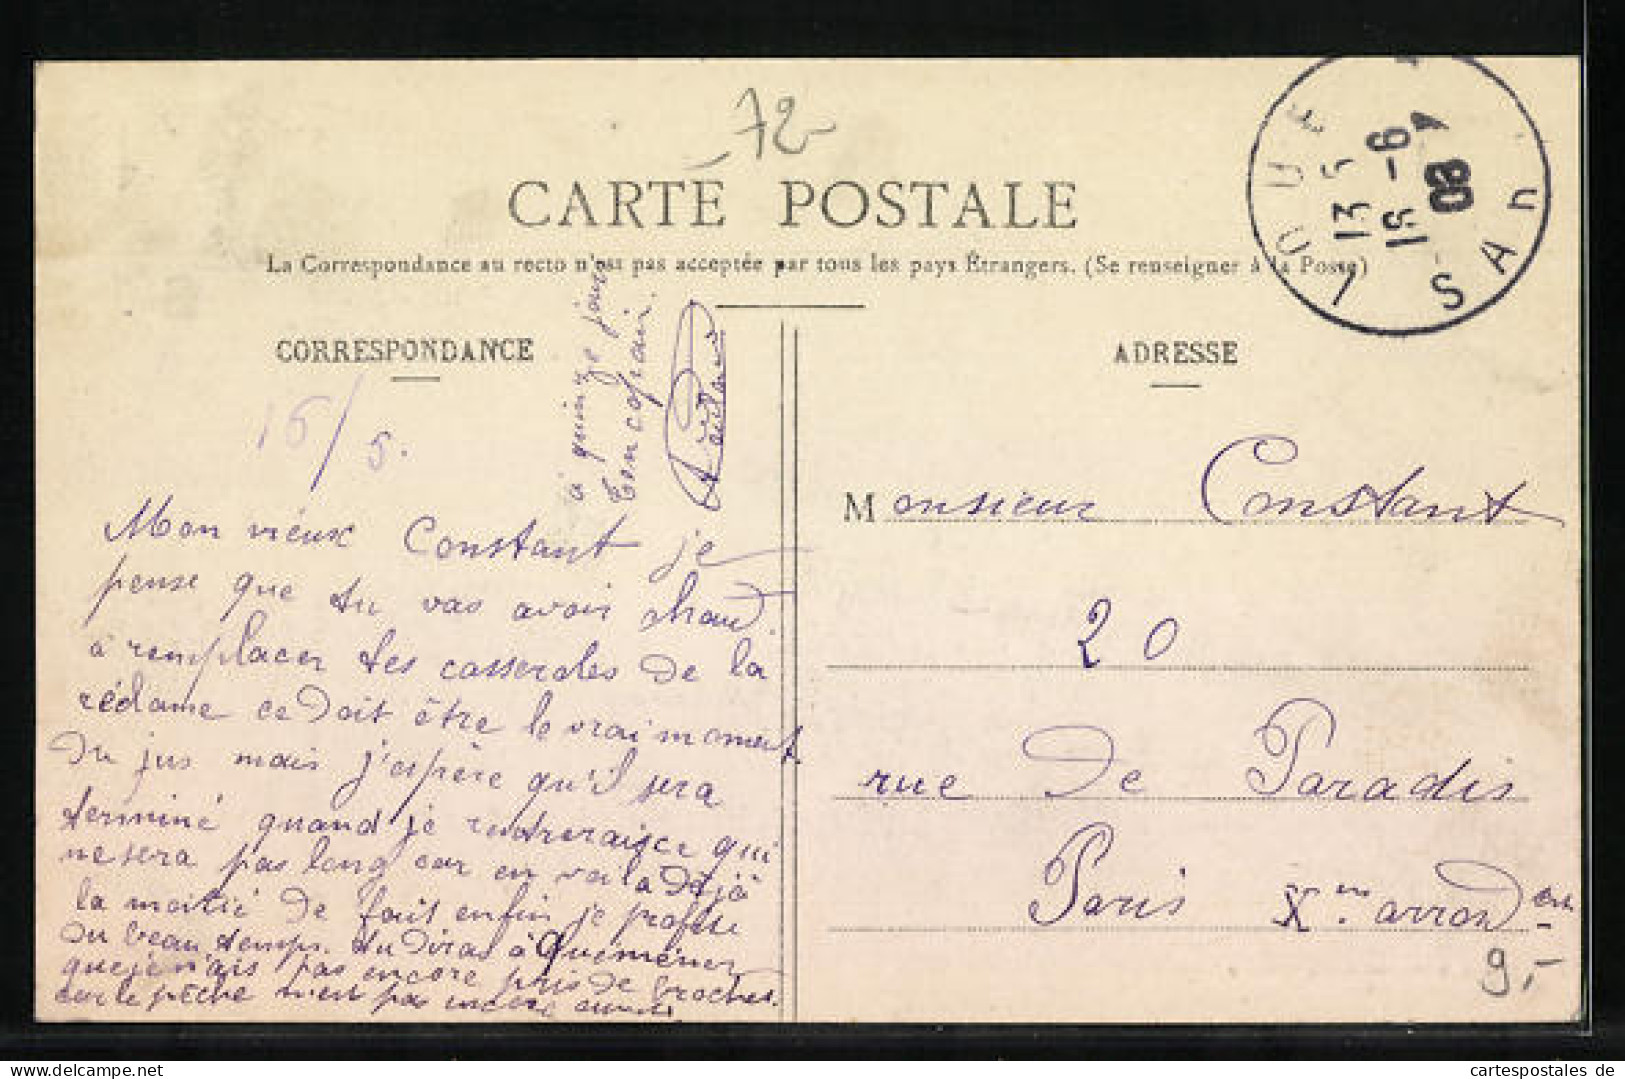 72
CARTE POSTALE
La Correspondance au recto n'est pas acceptée par tous les pays Étrangers. (Se renseigner à la Poste)
LOUÉ
SARTHE
13
15 -6
08
CORRESPONDANCE
ADRESSE
15/5.
Mon vieux Constant je
pense que tu vas avoir chaud.
a remplacer tes casseroles de la
réclame ce doit être le vrai moment
du jus mais j'espère qu'il sera
terminé quand je rentrerai ce qui
ne sera pas long car en voila déjà
la moitié de fait enfin je profite
du beau temps. tu diras à Quéméner
que je n'ais pas encore pris de broches.
car le pêche n'est pas encore
à quinze jours
Ton copain.
Monsieur Constant
20
rue de Paradis
Paris Xme arrondent
9,-
www.cartespostales.de
cartespostales de